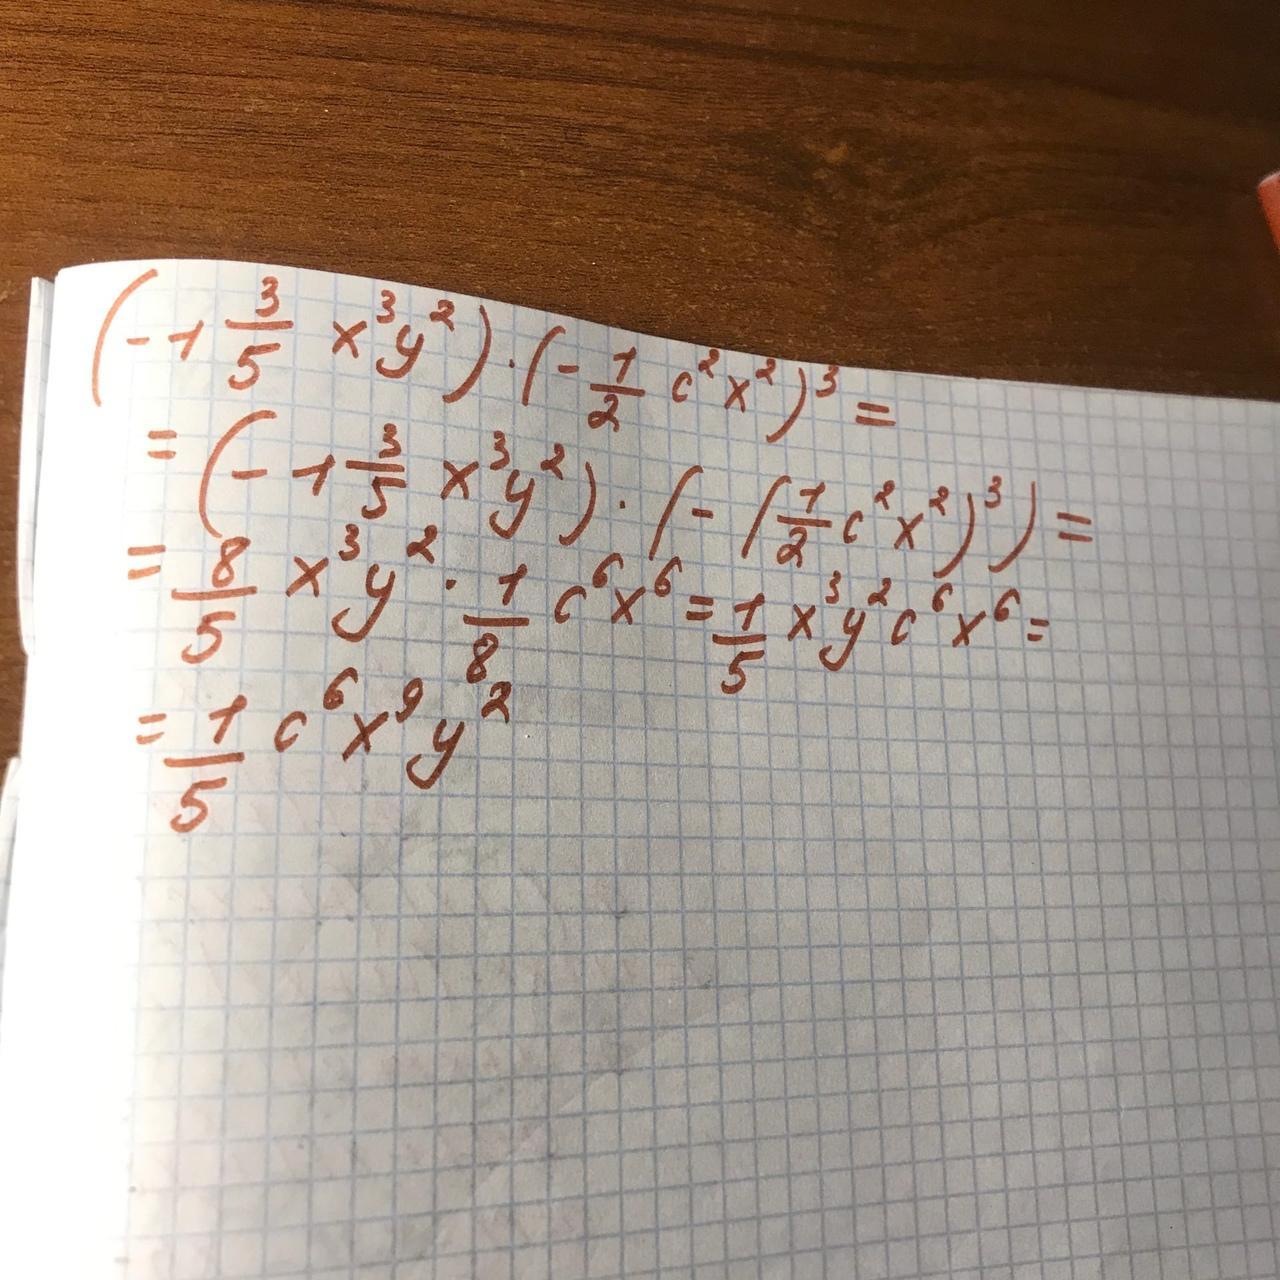 (-1 3/5 x³y²)·(-1/2 c²x²)³=
=(-1 3/5 x³y²)·(-(1/2 c²x²)³)=
=8/5 x³y²·1/8 c⁶x⁶=1/5 x³y²c⁶x⁶=
=1/5 c⁶x⁹y²